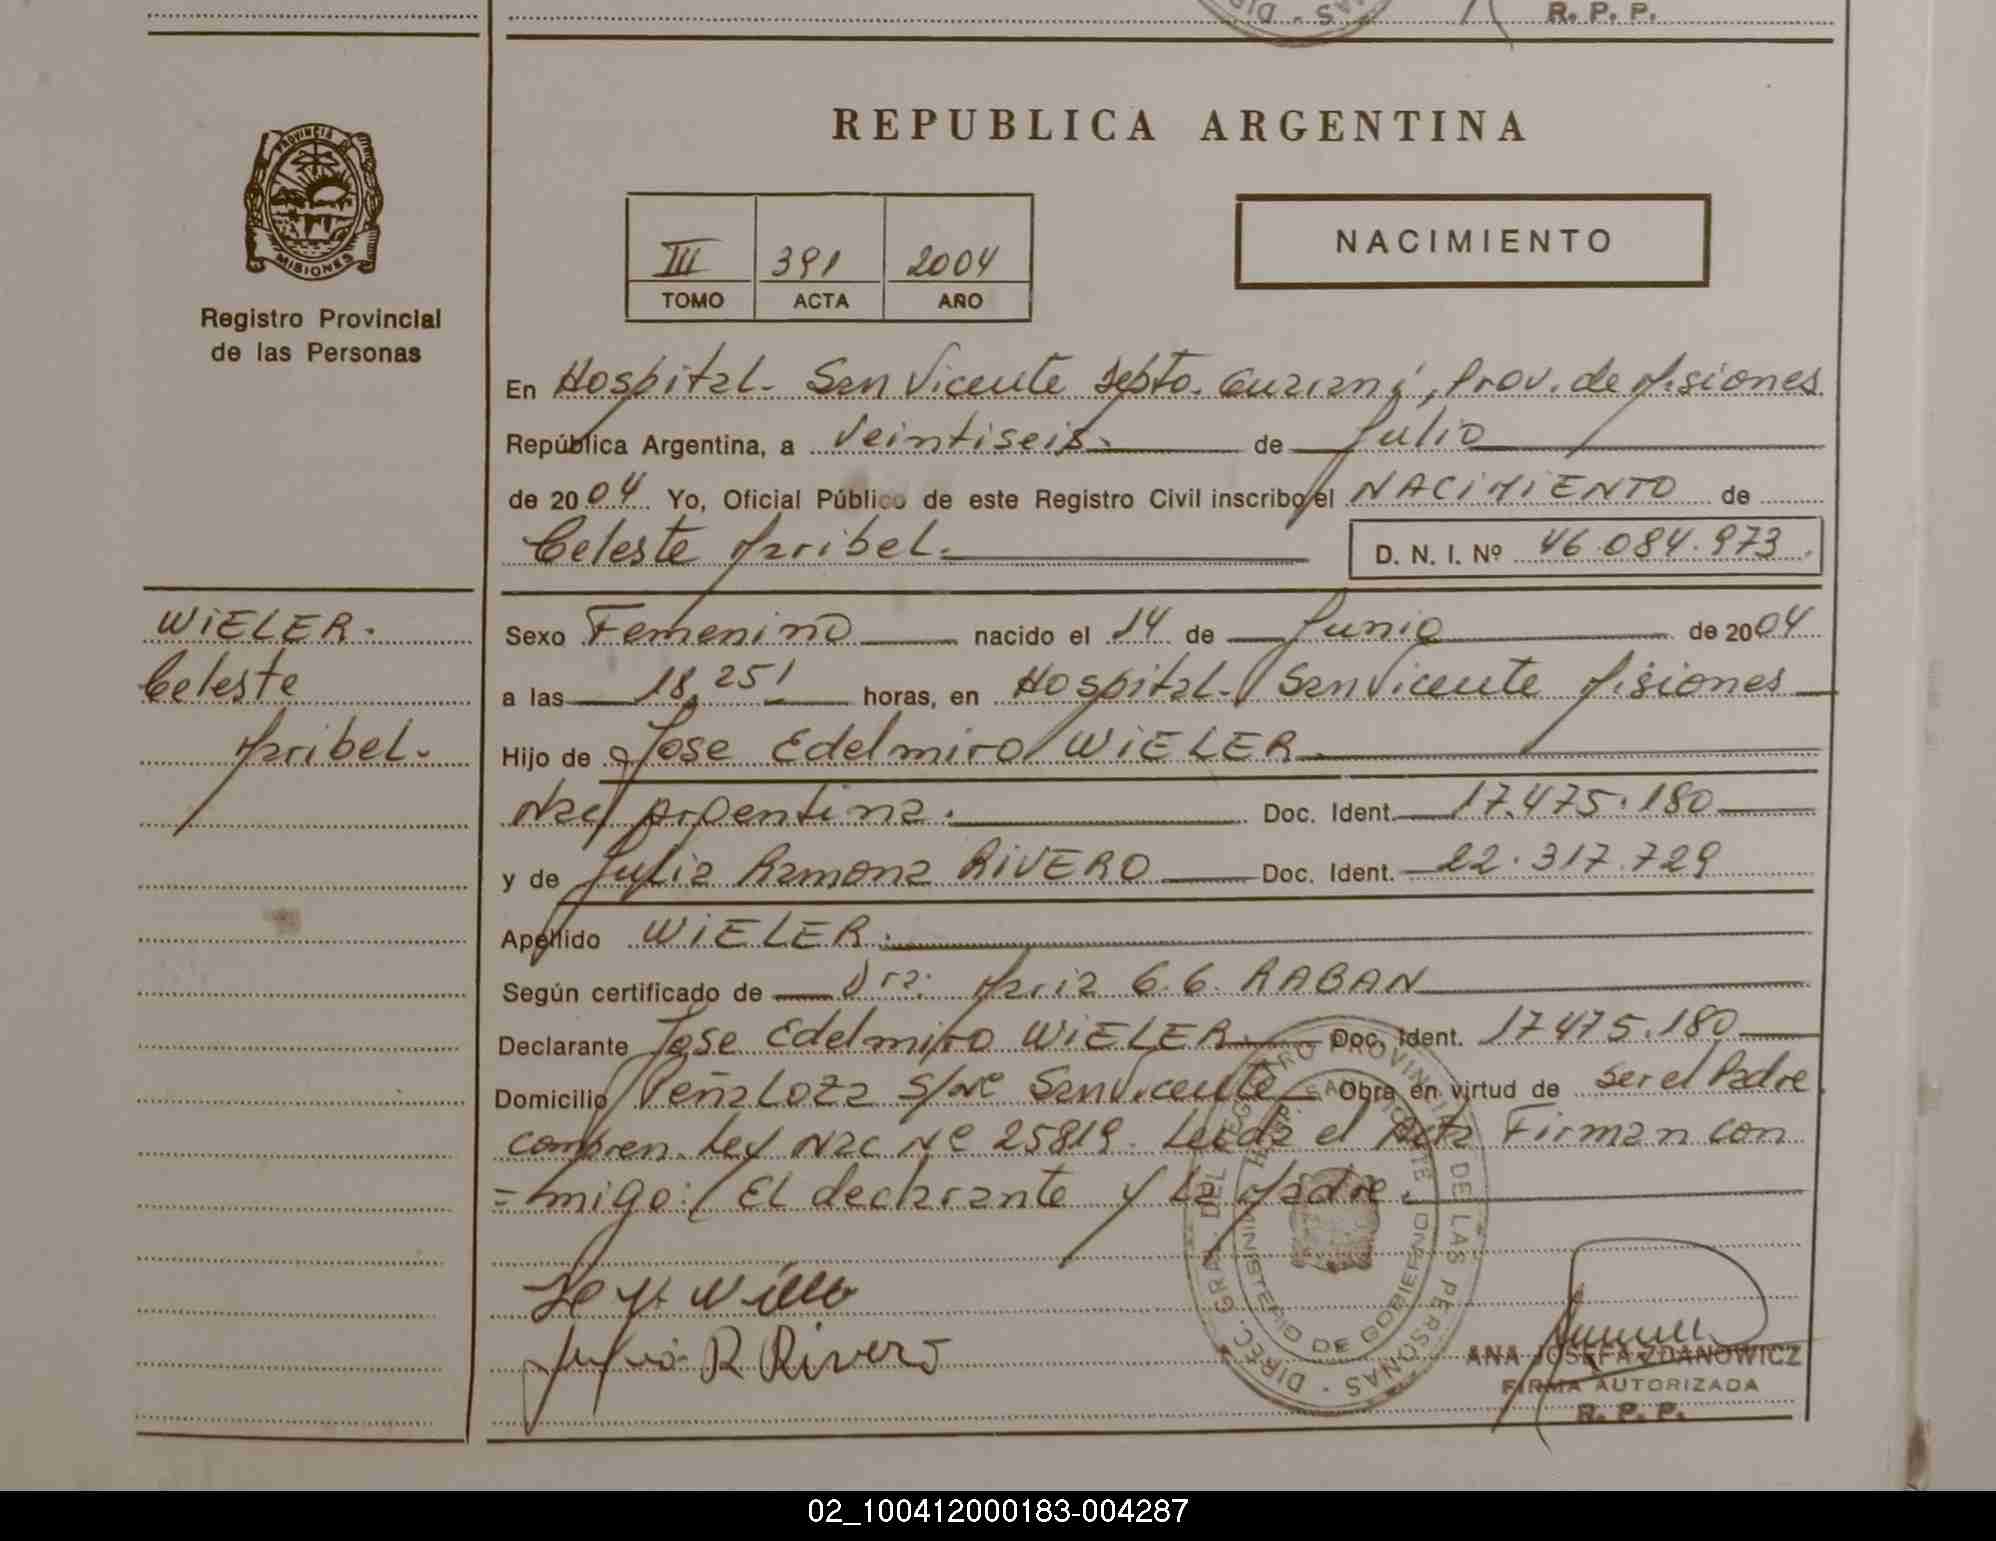 R. P. P.
REPUBLICA ARGENTINA
PROVINCIA DE
MISIONES
Registro Provincial
de las Personas
III 391 2004
TOMO ACTA AÑO
NACIMIENTO
En Hospital. San Vicente Depto. Guaraní, Prov. de Misiones
República Argentina, a Veintiseis. de Julio
de 2004 Yo, Oficial Público de este Registro Civil inscribo el NACIMIENTO de
Celeste Maribel. D. N. I. Nº 46.084.973
WIELER.
Celeste
Maribel.
Sexo Femenino nacido el 14 de Junio de 2004
a las 18,25' horas, en Hospital. San Vicente Misiones
Hijo de Jose Edelmiro WIELER.
Nac Argentina. Doc. Ident. 17.475.180
y de Julia Ramona RIVERO Doc. Ident. 22.317.729
Apellido WIELER.
Según certificado de Dra. Maria G.G. RABAN
Declarante Jose Edelmiro WIELER. Doc. Ident. 17475.180
Domicilio Peñaloza S/Nº San Vicente Obra en virtud de ser el Padre
compren. Ley Nac Nº 25819. Leida el Acta Firman con
=migo: El declarante y la Madre.
Julia R Rivero
DIREC. GRAL. DEL REGISTRO PROVINCIAL DE LAS PERSONAS
MINISTERIO DE GOBIERNO
ANA JOSEFA ZDANOWICZ
FIRMA AUTORIZADA
R. P. P.
02_100412000183-004287